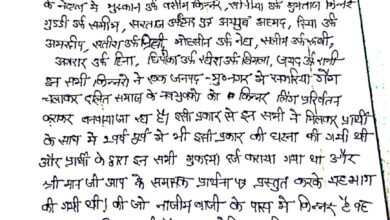 के नेतृत्व में मुस्कान उर्फ वसीम किन्नर, सोनिया उर्फ मुमताज किन्नर
गुड्डी उर्फ समीम, सरताज पुत्र अय्युब अहमद, रिया उर्फ
अमरदीप, सतीश उर्फ मोहसीन उर्फ नेहा, सलीम उर्फ रूबी,
अबरार उर्फ हिना, दीपिका उर्फ उर्फ जुनैद उर्फ रानी
इन सभी किन्नरों ने एक जनपद- मु0नगर में सक्रिय गैंग
चलाकर दलित समाज के नवयुवकों का किन्नर लिंग परिवर्तन
कराकर बनवाया जा रहा है। इसी प्रकार से इन सभी ने मिलकर प्रार्थी
के साथ में 2 वर्ष पूर्व में भी इसी प्रकार की घटना की गयी थी
और प्रार्थी के द्वारा इन सभी मुकदमा दर्ज कराया गया था और
श्रीमान जी आप के समक्ष प्रार्थना पत्र प्रस्तुत करके यह मांग
की गयी थी। की जो नाजीम बाजी के पास में किन्नर है वह